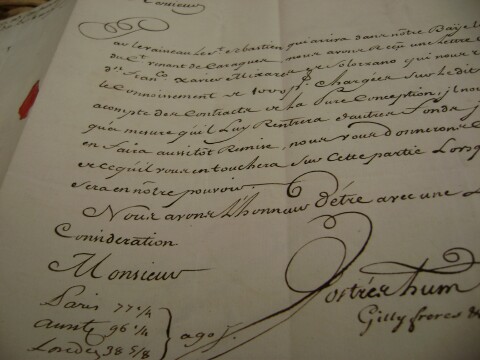 Monsieur
au le vaisseau le St. Sebastien qui arriva dans nôtre Baÿe l
du Ct. venant de Caraques, nous avons reçu une Lettre
Dn. Franco. Xavier Mixares de Solorzano qui nous
le Connoissement de pf. Chargées Sur ledit
acompte des Contracts de La Pure Conception, il nous
qu'a mesure qu'il Luy Rentrera d'autres fonds, il
en Faira aussitôt Remise, nous vous donnerons
de ce qu'il vous en touchera Sur Cette partie Lorsq
Sera en nôtre pouvoir.
Nous avons L'honneur D'être avec une
Consideration
Monsieur
Vos trés hum
Gilly freres
Paris 77 1/4
Amste 96 1/4
Londes 38 5/8
a go js